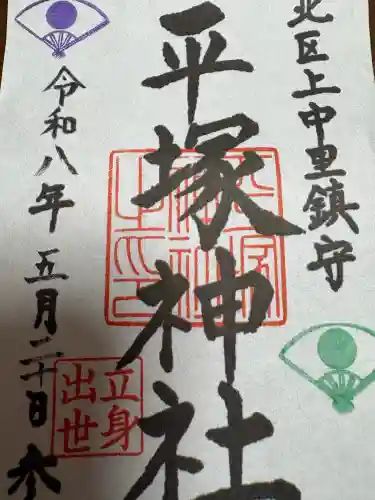 北区上中里鎮守
平塚神社
令和八年五月二十日参
立身
出世